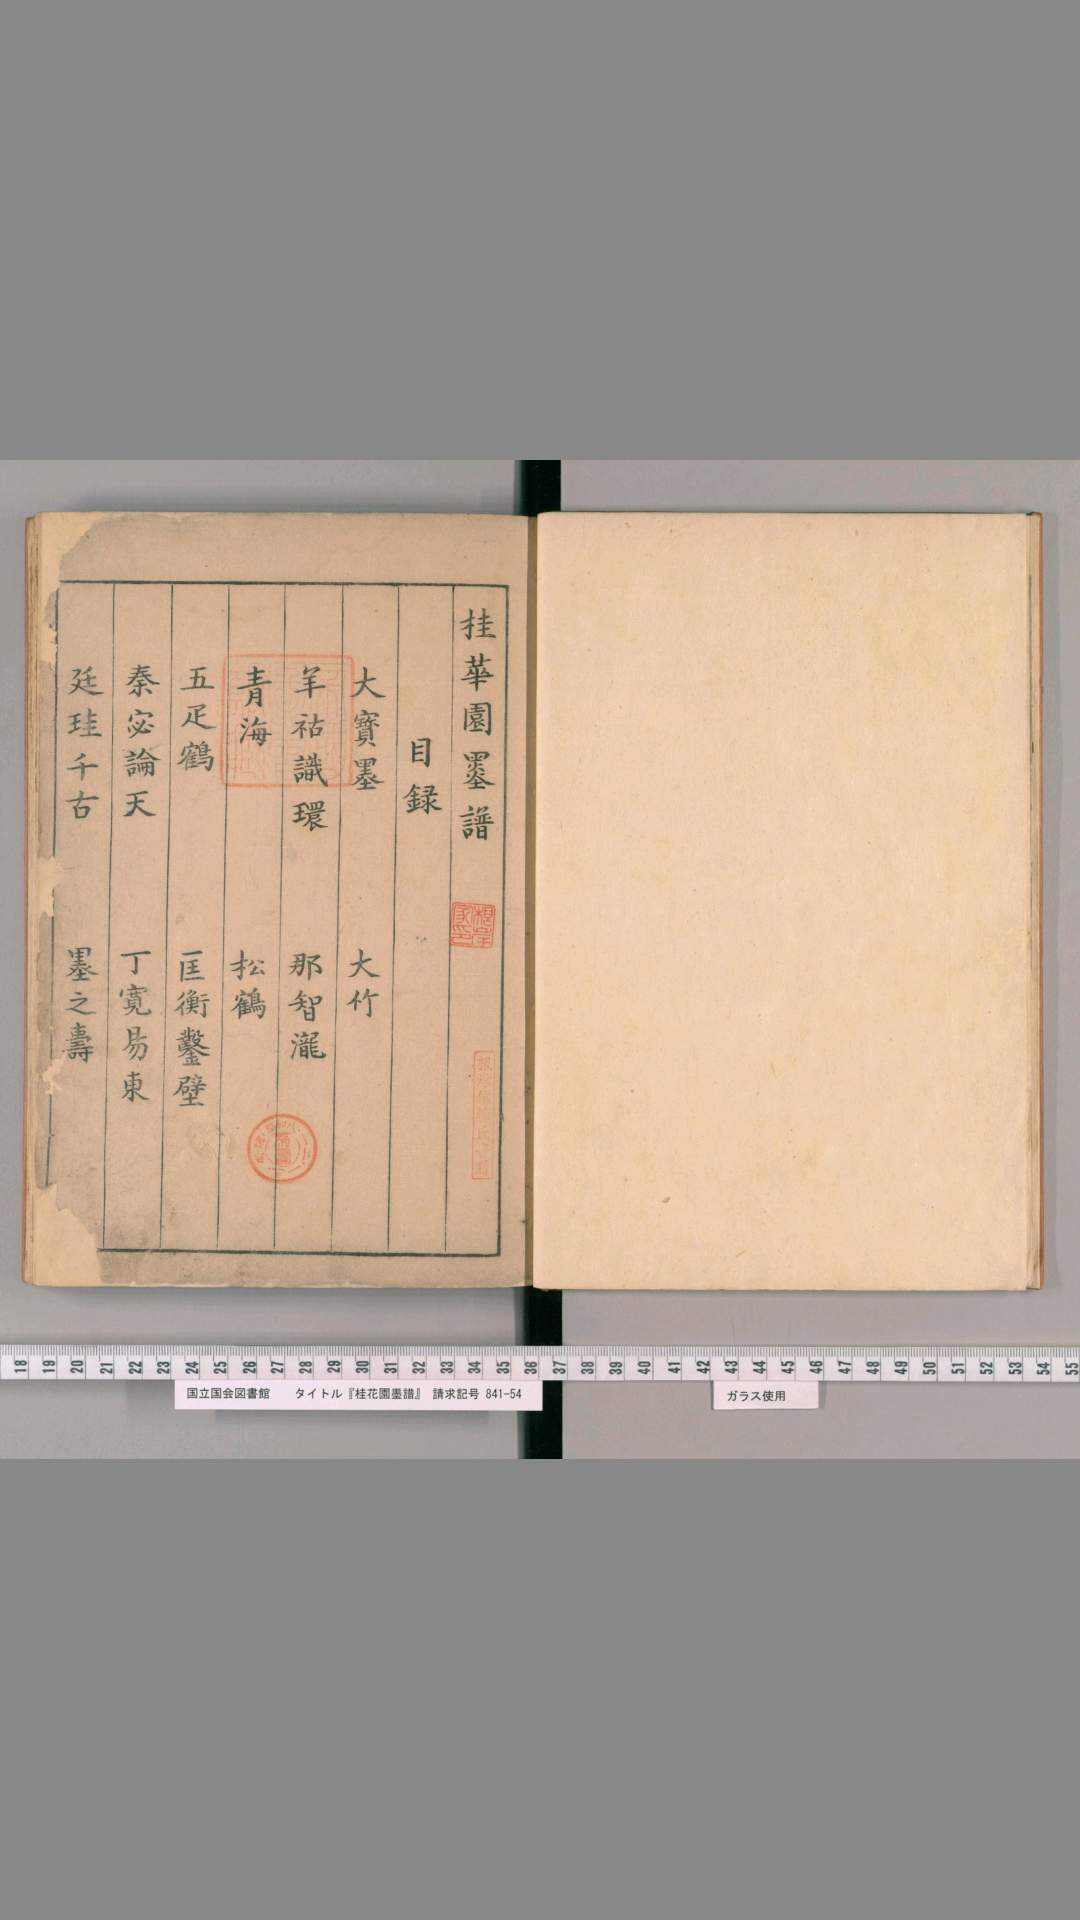 桂華園墨譜
目録
大寳墨　大竹
羊祜識環　那智瀧
青海　松鶴
五疋鶴　匡衡鑿壁
秦宓論天　丁寛易東
廷珪千古　墨之壽
18 19 20 21 22 23 24 25 26 27 28 29 30 31 32 33 34 35 36 37 38 39 40 41 42 43 44 45 46 47 48 49 50 51 52 53 54 55
国立国会図書館　タイトル『桂花園墨譜』　請求記号 841-54
ガラス使用